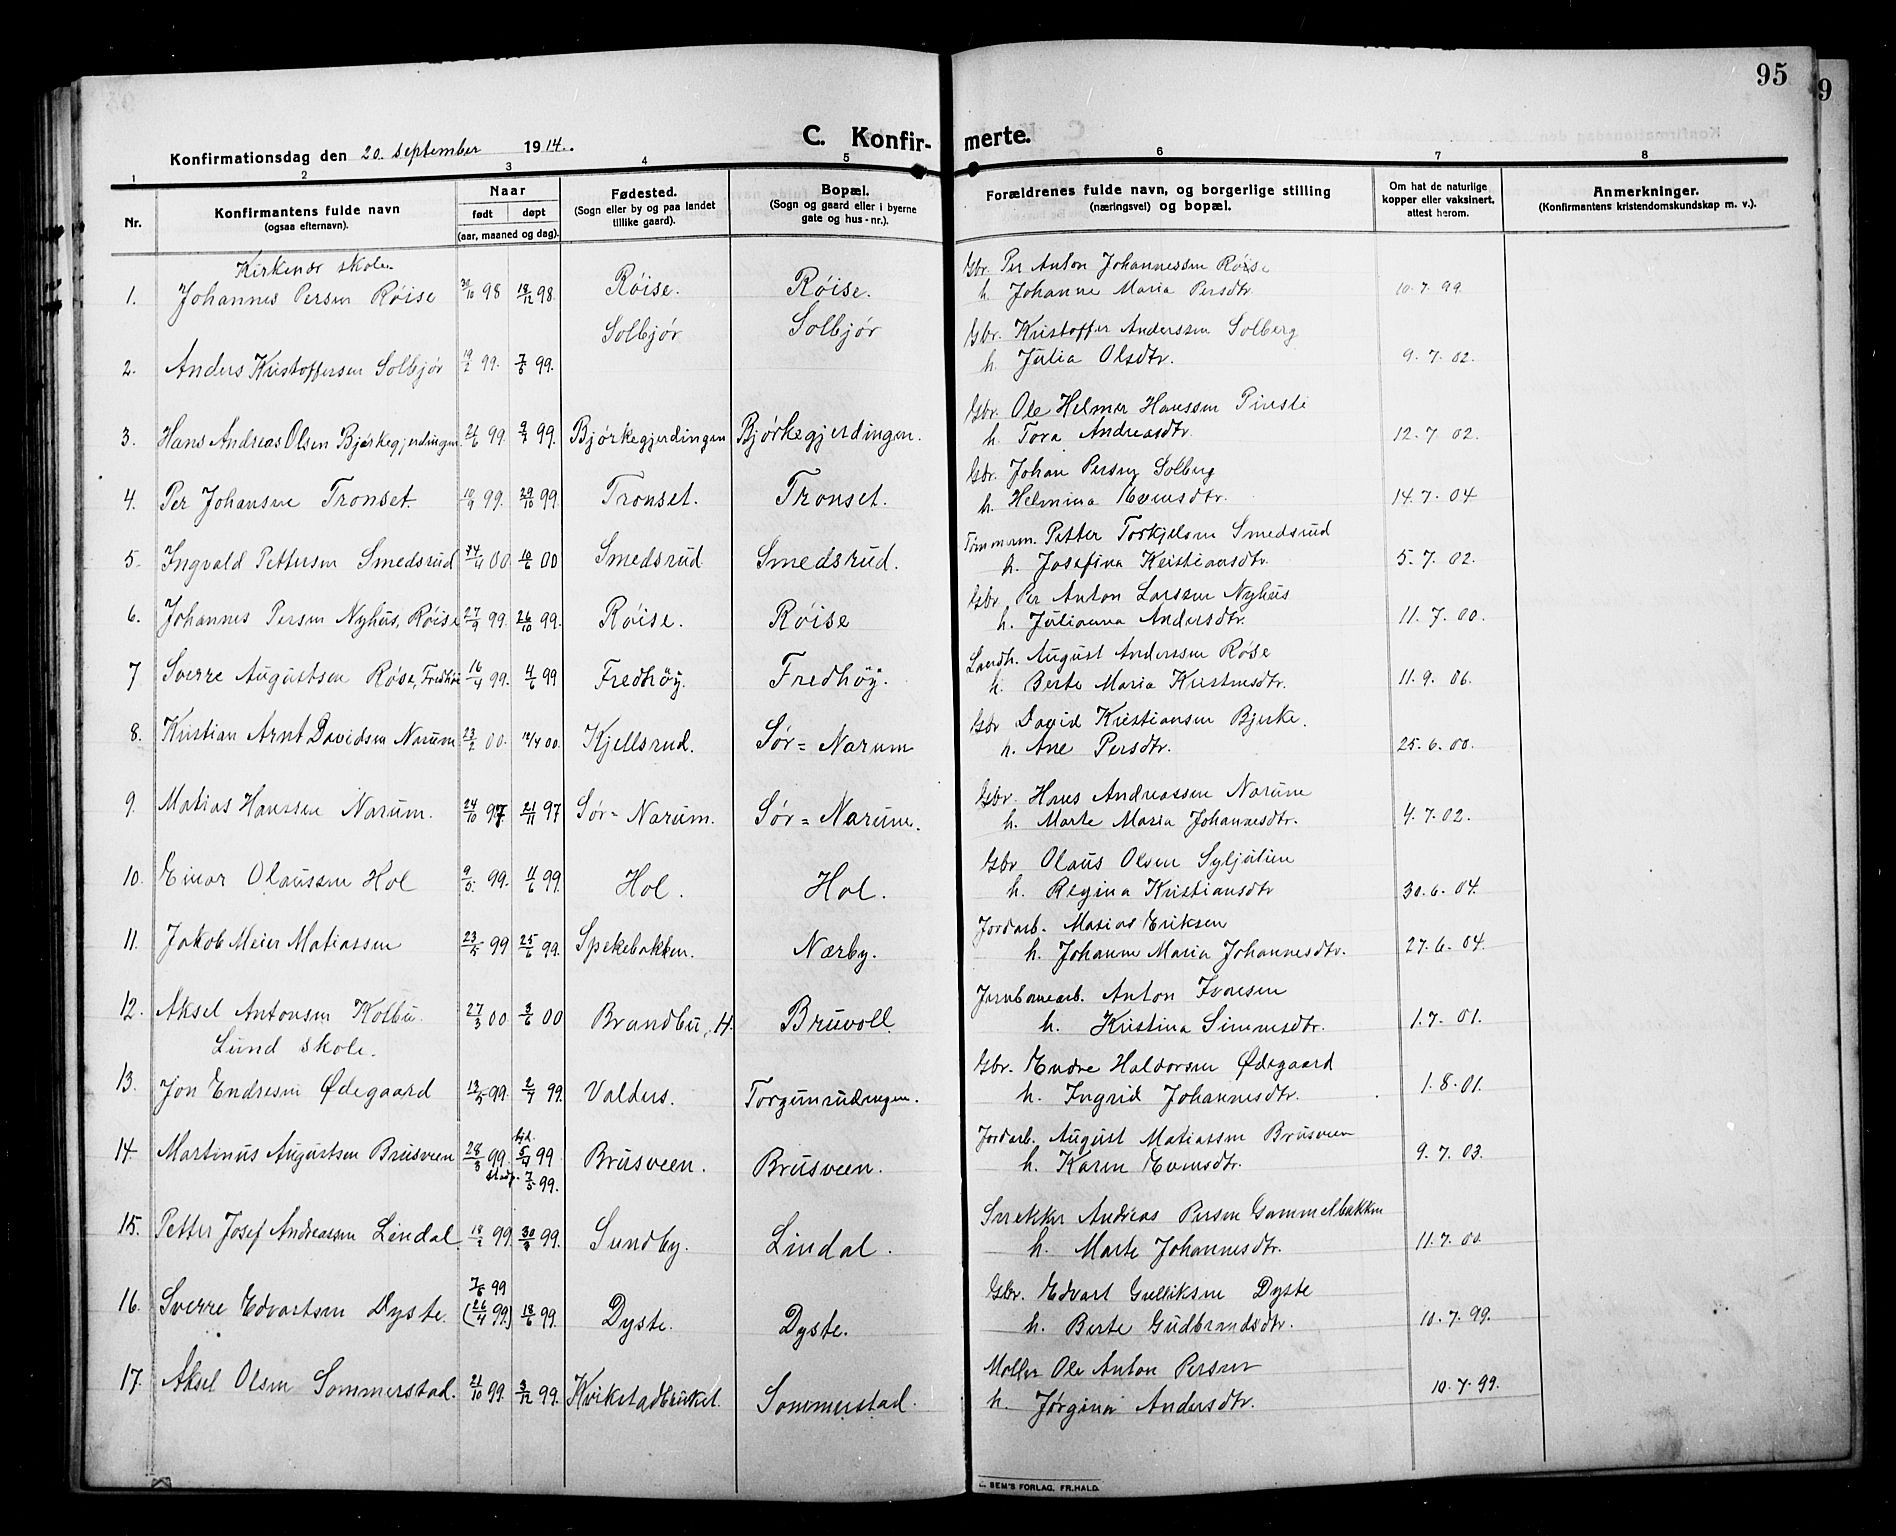 95
9
C. Konfir- merte.
Konfirmationsdag den 20. september 1914.
1 2 3 4 5 6 7 8
Nr.
Konfirmantens fulde navn
(ogsaa efternavn).
Naar
født døpt
(aar, maaned og dag).
Fødested.
(Sogn eller by og paa landet
tillike gaard).
Bopæl.
(Sogn og gaard eller i byerne
gate og hus-nr.).
Forældrenes fulde navn, og borgerlige stilling
(næringsvei) og bopæl.
Om hat de naturlige
kopper eller vaksinert,
attest herom.
Anmerkninger.
(Konfirmantens kristendomskundskap m. v.).
Kirkenær skole.
Gbr. Per Anton Johannessen Røise
1. Johannes Persen Røise 98 18/12 98. Røise. Røise.
h. Johanne Maria Persdtr. 10.7.99
Solbjør Solbjør
Gbr. Kristoffer Anderssen Solberg
2. Anders Kristoffersen Solbjør 99. 99.
h. Julia Olsdtr. 9.7.02.
Gbr. Ole Helmer Hanssen
3. Hans Andreas Olsen Bjørkegjerdingen 21/6 99. 99. Bjørkegjerdingen Bjørkegjerdingen.
h. Tora Andreasdtr. 12.7.02.
Gbr. Johan Persen Solberg
4. Per Johansen Tronset. 99. 29/10 99. Tronset. Tronset.
h. Helmina Evensdtr. 14.7.04
Tømmerm. Petter Torkjelsen Smedsrud
5. Ingvald Pettersen Smedsrud 24/4 00. 10/6 00 Smedsrud Smedsrud.
h. Josefina Kristiansdtr. 5.7.02.
Gbr. Per Anton Larssen Nyhus
6. Johannes Persen Nyhus, Røise 27/9 99. 26/10 99. Røise. Røise
h. Julianna Andersdtr. 11.7.00.
Landh. August Anderssen Røse
7 Sverre Augustsen Røse, Fredhøi 16/4 99. 4/6 99 Fredhöy. Fredhöy.
h. Berte Maria Kristensdtr. 11.9.06.
Gbr David Kristiansen Bjerke.
8. Kristian Arnt Davidsen Narum 23/2 00. 12/4 00. Kjellsrud. Sør=Narum
h. Ane Persdtr. 25.6.00.
Gbr. Hans Andreassen Narum
9. Matias Hanssen Narum. 24/10 97 21/11 97 Sør=Narum. Sør=Narum.
h. Marte Maria Johannesdtr. 4.7.02.
Gbr Olaus Olsen Syljulien
10. Einar Olaussen Hol 9/5 99. 11/6 99. Hol. Hol.
h. Regina Kristiansdtr 30.6.04.
Jordarb. Matias Eriksen
11. Jakob Meier Matiassen 23/5 99 25/6 99. Spekebakken. Nærby.
h. Johanne Maria Johannesdtr. 27.6.04.
Jernbanearb. Anton Ivarsen
12. Aksel Antonsen Kolbu. 27/3 00 3/6 00 Brandbu, H. Bruvoll.
h. Kristina Simensdtr. 1.7.01.
Lund skole.
Gbr. Endre Haldorsen Ødegaard
13. Jon Endresen Ødegaard 13/5 99. 2/7 99. Valders. Torgunrudengen.
h. Ingrid Johannesdtr. 1.8.01.
Jordarb. August Matiassen Brusveen
14. Martinus Augustsen Brusveen 28/3 99. hjd. 5/4 99 stadf. 7/5 99. Brusveen. Brusveen.
h. Karen Evensdtr. 9.7.03.
Snekker Andreas Persen Gammelbakken
15. Petter Josef Andreassen Lindal. 18/2 99. 30/3 99. Sundby. Lindal.
h. Marte Johannesdtr. 11.7.00
7/6 99
Gbr. Edvart Gulliksen Dyste
16. Sverre Edvartsen Dyste. (26/4 99) 18/6 99. Dyste. Dyste.
h. Berte Gudbrandsdtr. 10.7.99.
Møller Ole Anton Persen
17. Aksel Olsen Sommerstad. 21/10 99. 3/12 99. Kvikstadbruket. Sommerstad.
h. Jørgina Andersdtr. 10.7.99.
SEM'S FORLAG, FR.HALD.